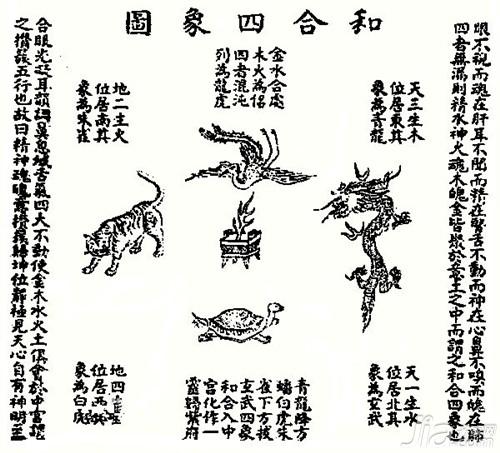 和合四象圖
眼不視而魂在肝耳不聞而精在腎舌不動而神在心鼻不嗅而魄在肺
四者無漏則精水神火魂木魄金皆聚於意土之中而謂之和合四象也
天三生木
位居東其
象為青龍
金水合處
木火為侶
四者混沌
列為龍虎
地二生火
位居南其
象為朱雀
天一生水
位居北其
象為玄武
青龍降方
蟠伯虎朱
雀下方拔
玄武四象
和合入中
宮化作一
靈歸紫府
地四生金
位居西其
象為白虎
合眼光凝耳韻調鼻息緘舌氣四大不動使金木水火土俱會於中宮謂
之攢簇五行也故曰精神魂魄意攢簇歸坤位靜極見天心自有神明至